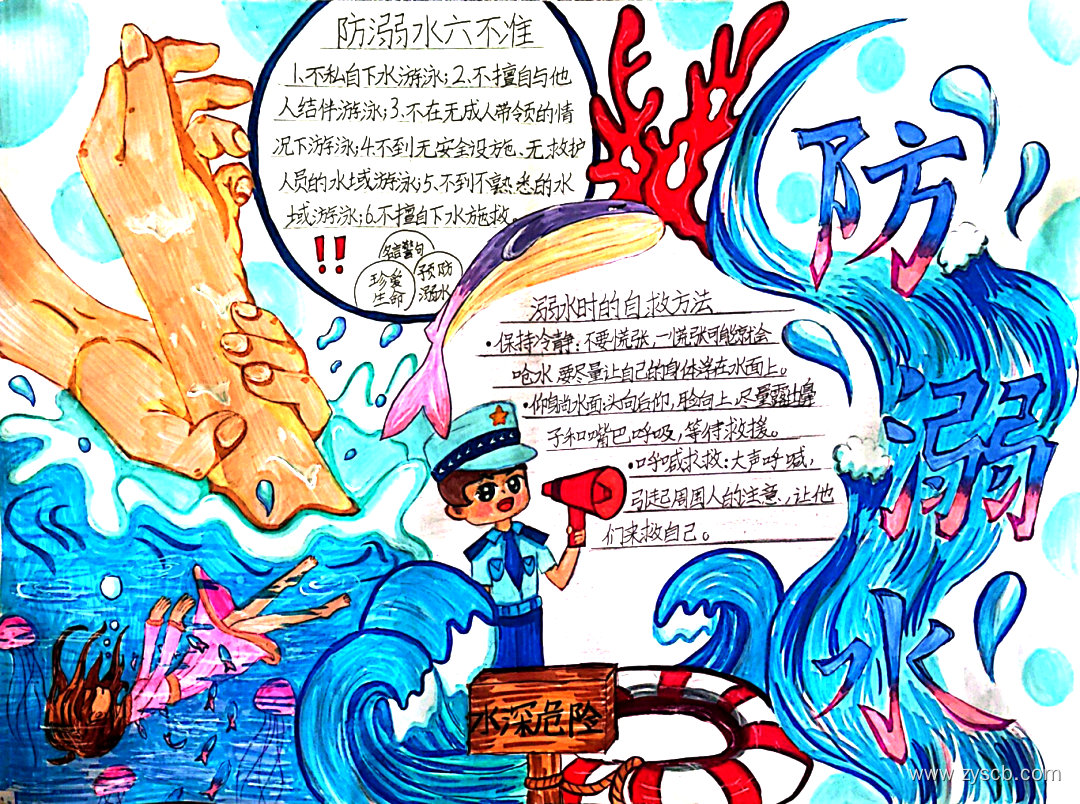 防溺水六不准
1、不私自下水游泳;2、不擅自与他
人结伴游泳;3、不在无成人带领的情
况下游泳;4、不到无安全设施、无救护
人员的水域游泳;5、不到不熟悉的水
域游泳;6、不擅自下水施救。
!!
名言警句
珍爱
生命
预防
溺水
溺水时的自救方法
•保持冷静:不要慌张,一慌张可能就会
呛水,要尽量让自己的身体浮在水面上。
•仰身尚水面:头向后仰,脸向上,尽量露出鼻
子和嘴巴,呼吸,等待救援。
•呼喊求救:大声呼喊,
引起周围人的注意,让他
们来救自己。
防
溺
水
水深危险
www.zyscb.com